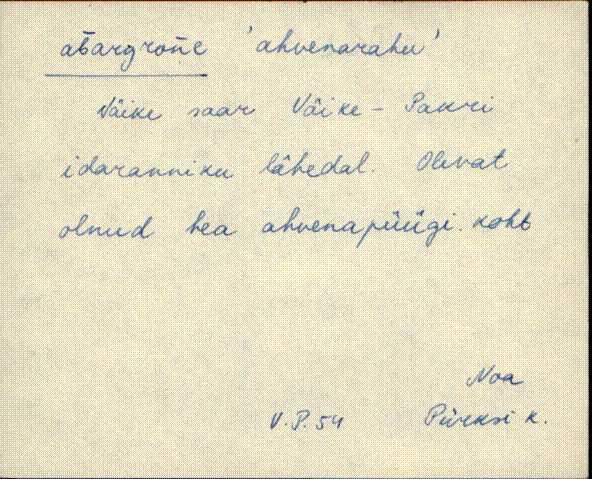 abargrone 'ahvenarahu'
Väike saar Väike-Pakri
idaranniku lähedal. Olevat
olnud hea ahvenapüügi koht
Noa
V.P. 54 Pürksi k.